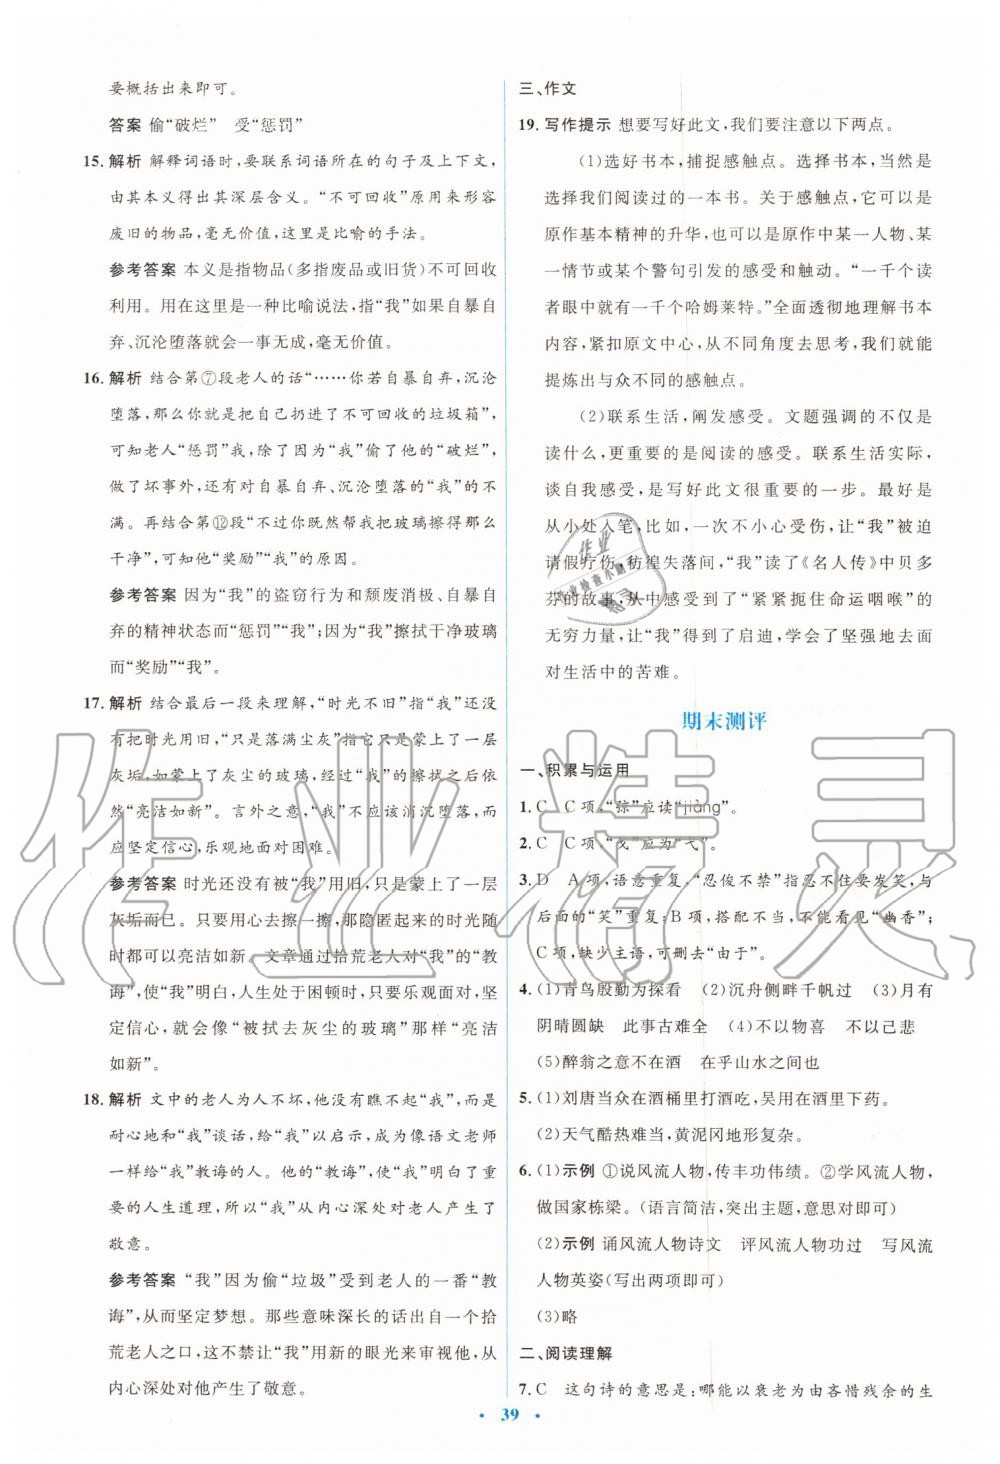 要概括出来即可。
答案 偷“破烂” 受“惩罚”
15. 解析 解释词语时,要联系词语所在的句子及上下文,
由其本义得出其深层含义。“不可回收”原用来形容
废旧的物品,毫无价值,这里是比喻的手法。
参考答案 本义是指物品(多指废品或旧货)不可回收
利用。用在这里是一种比喻说法,指“我”如果自暴自
弃、沉沦堕落就会一事无成,毫无价值。
16. 解析 结合第⑦段老人的话“……你若自暴自弃,沉沦
堕落,那么你就是把自己扔进了不可回收的垃圾箱”,
可知老人“惩罚”我,除了因为“我”偷了他的“破烂”,
做了坏事外,还有对自暴自弃、沉沦堕落的“我”的不
满。再结合第⑫段“不过你既然帮我把玻璃擦得那么
干净”,可知他“奖励”“我”的原因。
参考答案 因为“我”的盗窃行为和颓废消极、自暴自
弃的精神状态而“惩罚”“我”;因为“我”擦拭干净玻璃
而“奖励”“我”。
17. 解析 结合最后一段来理解,“时光不旧”指“我”还没
有把时光用旧,“只是落满尘灰”指它只是蒙上了一层
灰垢,如蒙上了灰尘的玻璃,经过“我”的擦拭又会焕
然“亮洁如新”。言外之意,“我”不应该消沉堕落,而
应坚定信心,乐观地面对困难。
参考答案 时光还没有被“我”用旧,只是蒙上了一层
灰垢而已。只要用心去擦一擦,那隐匿起来的时光随
时都可以亮洁如新。文章通过拾荒老人对“我”的“教
诲”,使“我”明白,人生处于困顿时,只要乐观面对,坚
定信心,就会像“被拭去灰尘的玻璃”那样“亮洁
如新”。
18. 解析 文中的老人为人不坏,他没有瞧不起“我”,而是
耐心地和“我”谈话,给“我”以启示,成为像语文老师
一样给“我”教诲的人。他的“教诲”,使“我”明白了重
要的人生道理,所以“我”从内心深处对老人产生了
敬意。
参考答案 “我”因为偷“垃圾”受到老人的一番“教
诲”,从而坚定梦想。那些意味深长的话出自一个拾
荒老人之口,这不禁让“我”用新的眼光来审视他,从
内心深处对他产生了敬意。
三、作文
19. 写作提示 想要写好此文,我们要注意以下两点。
(1)选好书本,捕捉感触点。选择书本,当然是
选择我们阅读过的一本书。关于感触点,它可以是
原作基本精神的升华,也可以是原作中某一人物、某
一情节或某个警句引发的感受和触动。“一千个读
者眼中就有一千个哈姆莱特。”全面透彻地理解书本
内容,紧扣原文中心,从不同角度去思考,我们就能
提炼出与众不同的感触点。
(2)联系生活,阐发感受。文题强调的不仅是
读什么,更重要的是阅读的感受。联系生活实际,
谈自我感受,是写好此文很重要的一步。最好是
从小处入笔,比如,一次不小心受伤,让“我”被迫
请假疗伤,彷徨失落间,“我”读了《名人传》中贝多
芬的故事,从中感受到了“紧紧扼住命运咽喉”的
无穷力量,让“我”得到了启迪,学会了坚强地去面
对生活中的苦难。
期末测评
一、积累与运用
1. C C项,“弶”应读“jiàng”。
2. C C项,“戈”应为“弋”。
3. D A项,语意重复,“忍俊不禁”指忍不住要发笑,与
后面的“笑”重复;B项,搭配不当,不能看见“幽香”;
C项,缺少主语,可删去“由于”。
4. (1)青鸟殷勤为探看 (2)沉舟侧畔千帆过 (3)月有
阴晴圆缺 此事古难全 (4)不以物喜 不以己悲
(5)醉翁之意不在酒 在乎山水之间也
5. (1)刘唐当众在酒桶里打酒吃,吴用在瓢里下药。
(2)天气酷热难当,黄泥冈地形复杂。
6. (1)示例 ①说风流人物,传丰功伟绩。②学风流人物,
做国家栋梁。(语言简洁,突出主题,意思对即可)
(2)示例 诵风流人物诗文 评风流人物功过 写风流
人物英姿(写出两项即可)
(3)略
二、阅读理解
7. C 这句诗的意思是:哪能以衰老为由吝惜残余的生
39
作业精灵
作业
作业检查小助手